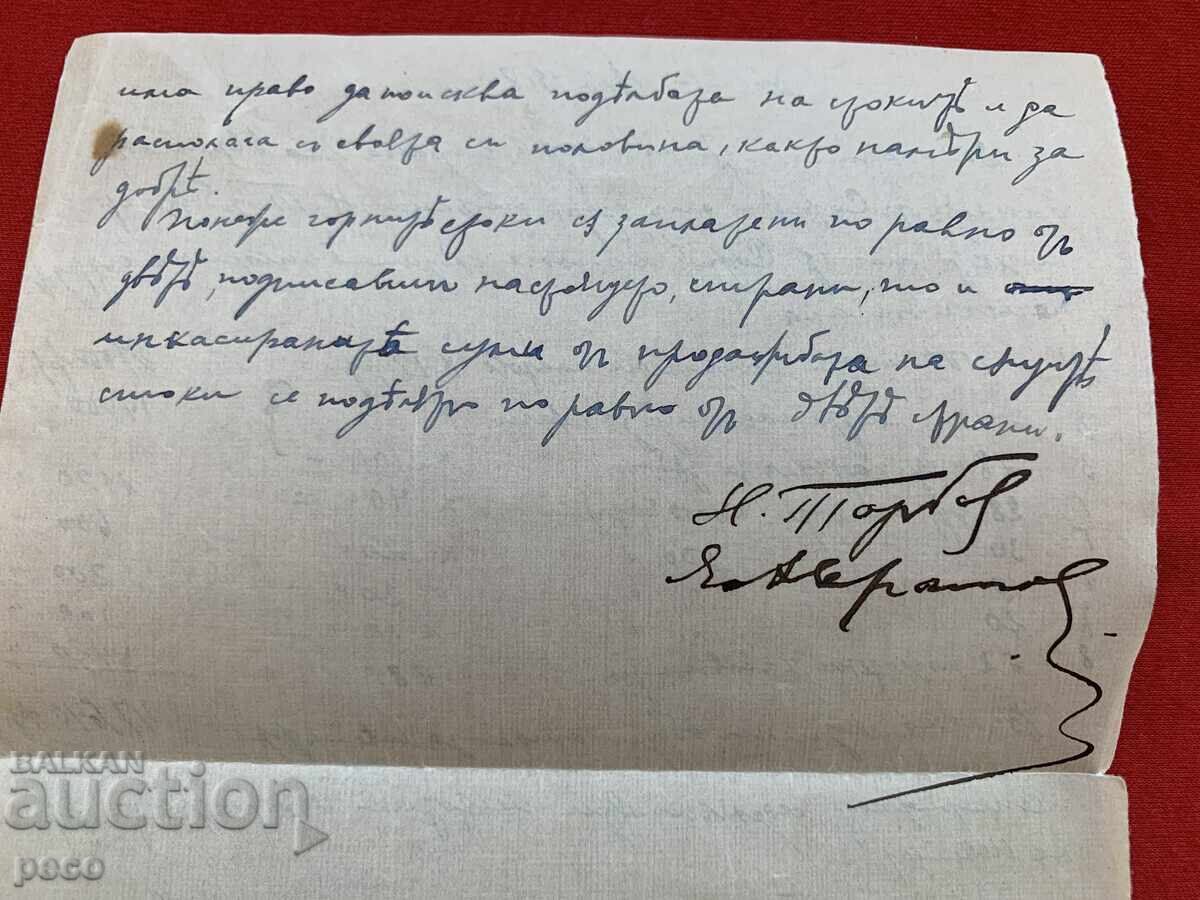 има право да поисква подѣлбата на стокитѣ и да
располага съ своята си половина, както намѣри за
добрѣ.
Понеже горнитѣ стоки сѫ заплатени по равно отъ
двѣтѣ, подписавши настоящето, страни, то и
инкасиранитѣ суми отъ продажбата на сѫщитѣ
стоки се подѣлятъ по равно отъ двѣтѣ страни.
Н. Торбов
BALKAN
auction
peco